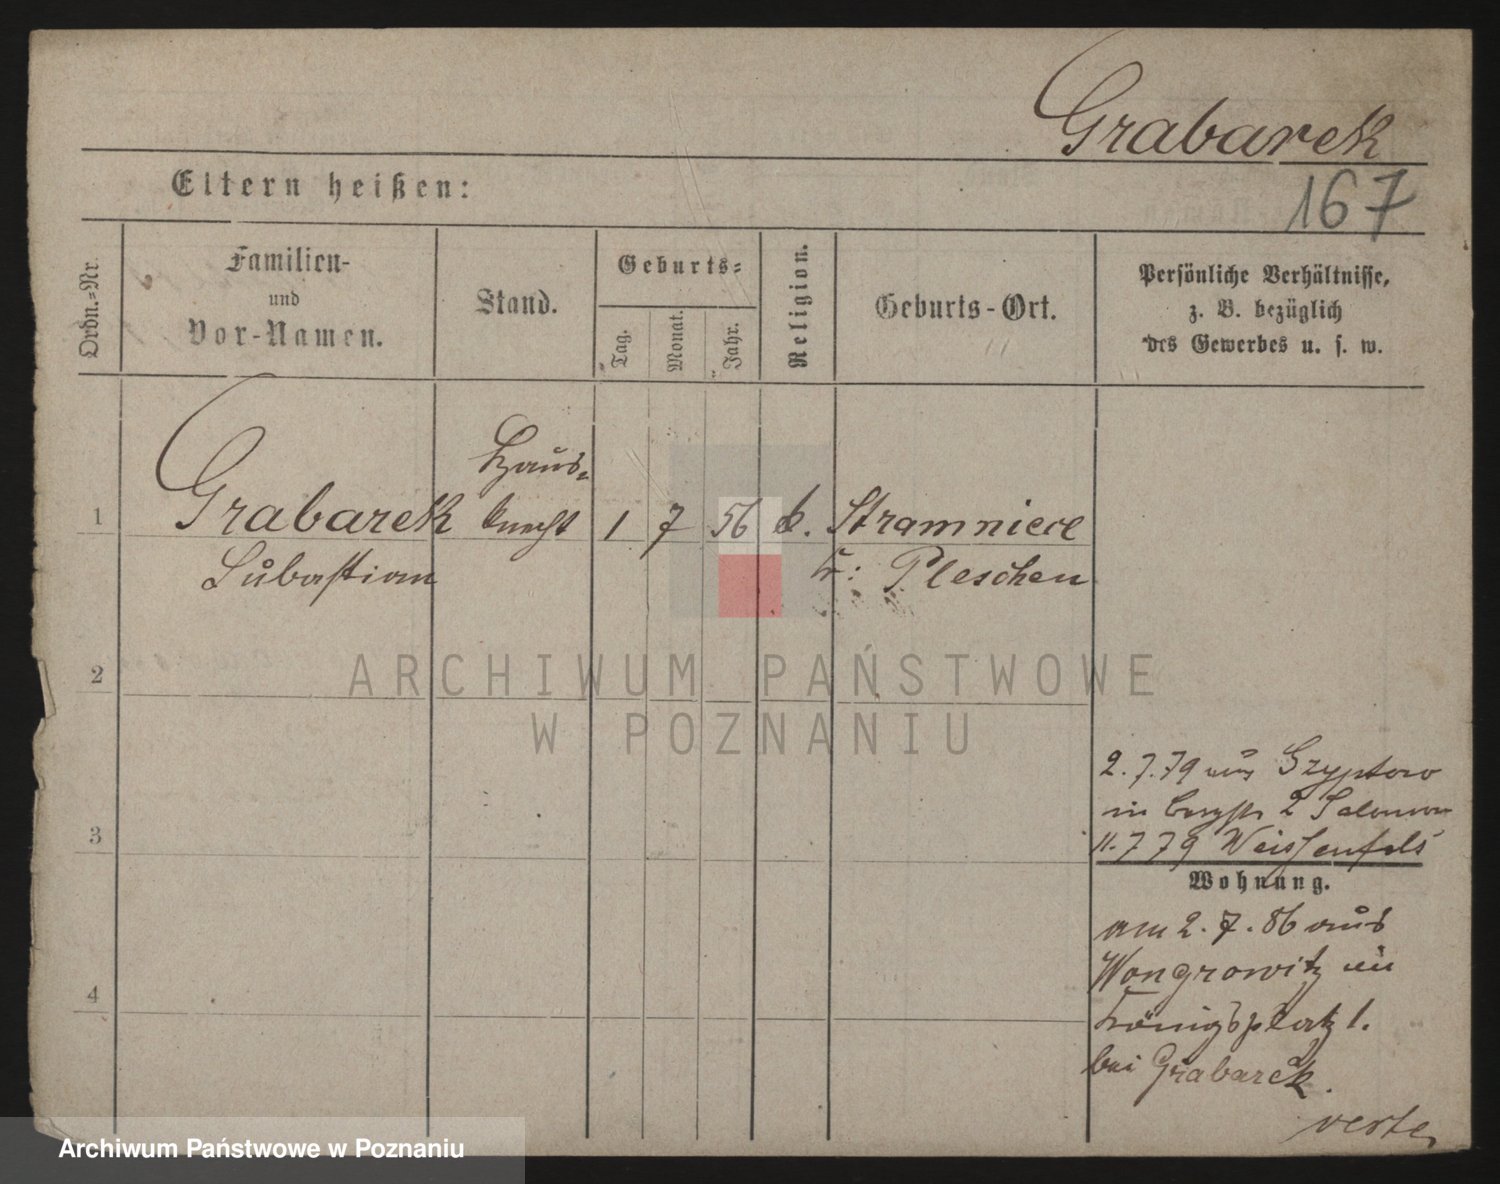 Grabarek
167
Eltern heißen:
Ordn.=Nr.
Familien-
und
Vor-Namen.
Stand.
Geburts=
Tag.
Monat.
Jahr.
Religion.
Geburts-Ort.
Persönliche Verhältnisse,
z. B. bezüglich
des Gewerbes u. s. w.
Haus-
1 Grabarek knecht 1 7 56 k. Stramnice
Subastian Kr: Pleschen
2
ARCHIWUM PAŃSTWOWE
W POZNANIU
2.7.79 aus
in 2 Salomon
3
11.7 79 Weissenfels
Wohnung.
am 2.7.86 aus
Wongrowitz in
4
Königsplatz 1.
bei Grabarek.
verte
Archiwum Państwowe w Poznaniu